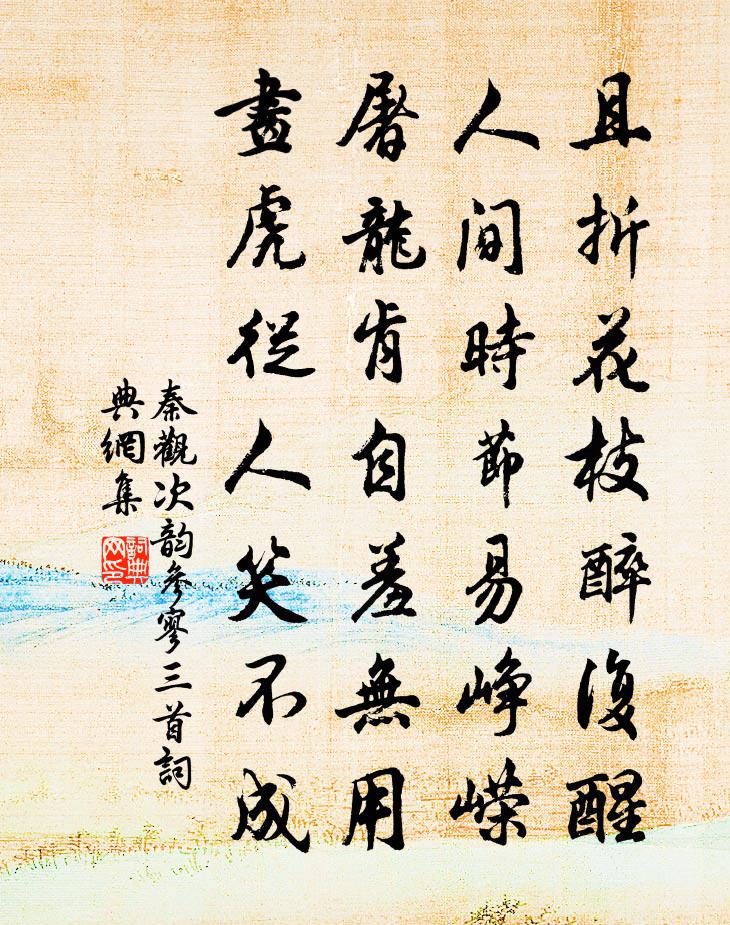 且折花枝醉復醒
人間時節易崢嶸
屠龍肯自羞無用
畫虎從人笑不成
秦觀次韵參寥三首詞
典網集
詞典
网印